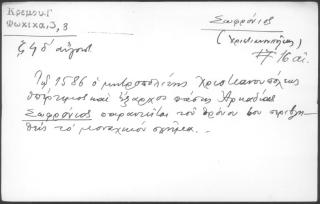 Κρεμου. Γ
Φωκικα, 3, 8
Σωφρόνιος
(Χριστιανουπόλεως)
16 αι.
Τῷ 1586 ὁ μητροπολίτης Χριστιανουπόλεως
ὑπέρτιμος καὶ ἔξαρχος πάσης Ἀρκαδίας
Σωφρόνιος παραιτεῖται τοῦ θρόνου του περιβλη
θεὶς τὸ μοναχικὸν σχῆμα.